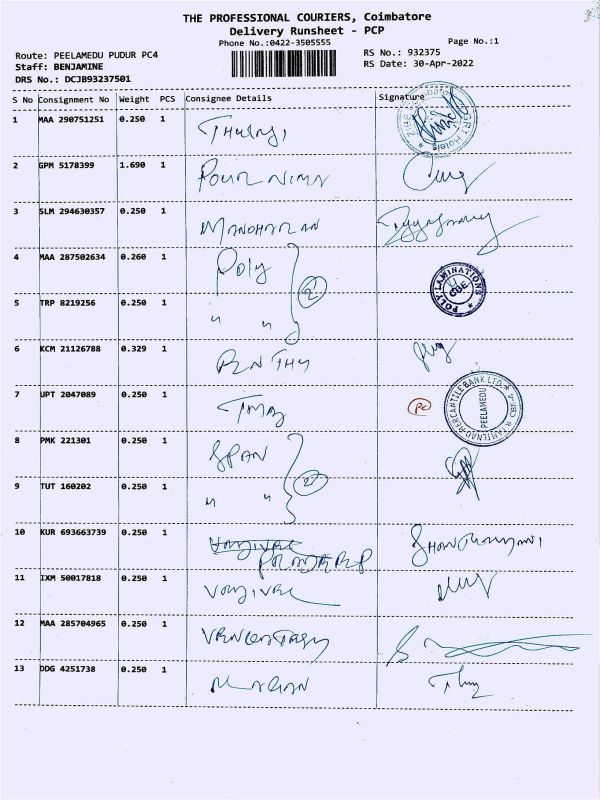 THE PROFESSIONAL COURIERS, Coimbatore
Delivery Runsheet - PCP
Phone No.:0422-3505555
Page No.:1
Route: PEELAMEDU PUDUR PC4
RS No.: 932375
Staff: BENJAMINE
RS Date: 30-Apr-2022
DRS No.: DCJB93237501
S No Consignment No Weight PCS Consignee Details Signature
1 MAA 290751251 0.250 1
2 GPM 5178399 1.690 1
3 SLM 294630357 0.250 1 MANOHARAN
4 MAA 287502634 0.260 1 POLY 2 POLY LAMINATIONS CBE
5 TRP 8219256 0.250 1 " "
6 KCM 21126788 0.329 1
7 UPT 2047089 0.250 1 TMB PC TAMILNAD MERCANTILE BANK LTD. PEELAMEDU
8 PMK 221301 0.250 1 SPAN 2
9 TUT 160202 0.250 1 " "
10 KUR 693663739 0.250 1
11 IXM 50017818 0.250 1
12 MAA 285704965 0.250 1
13 DDG 4251738 0.250 1